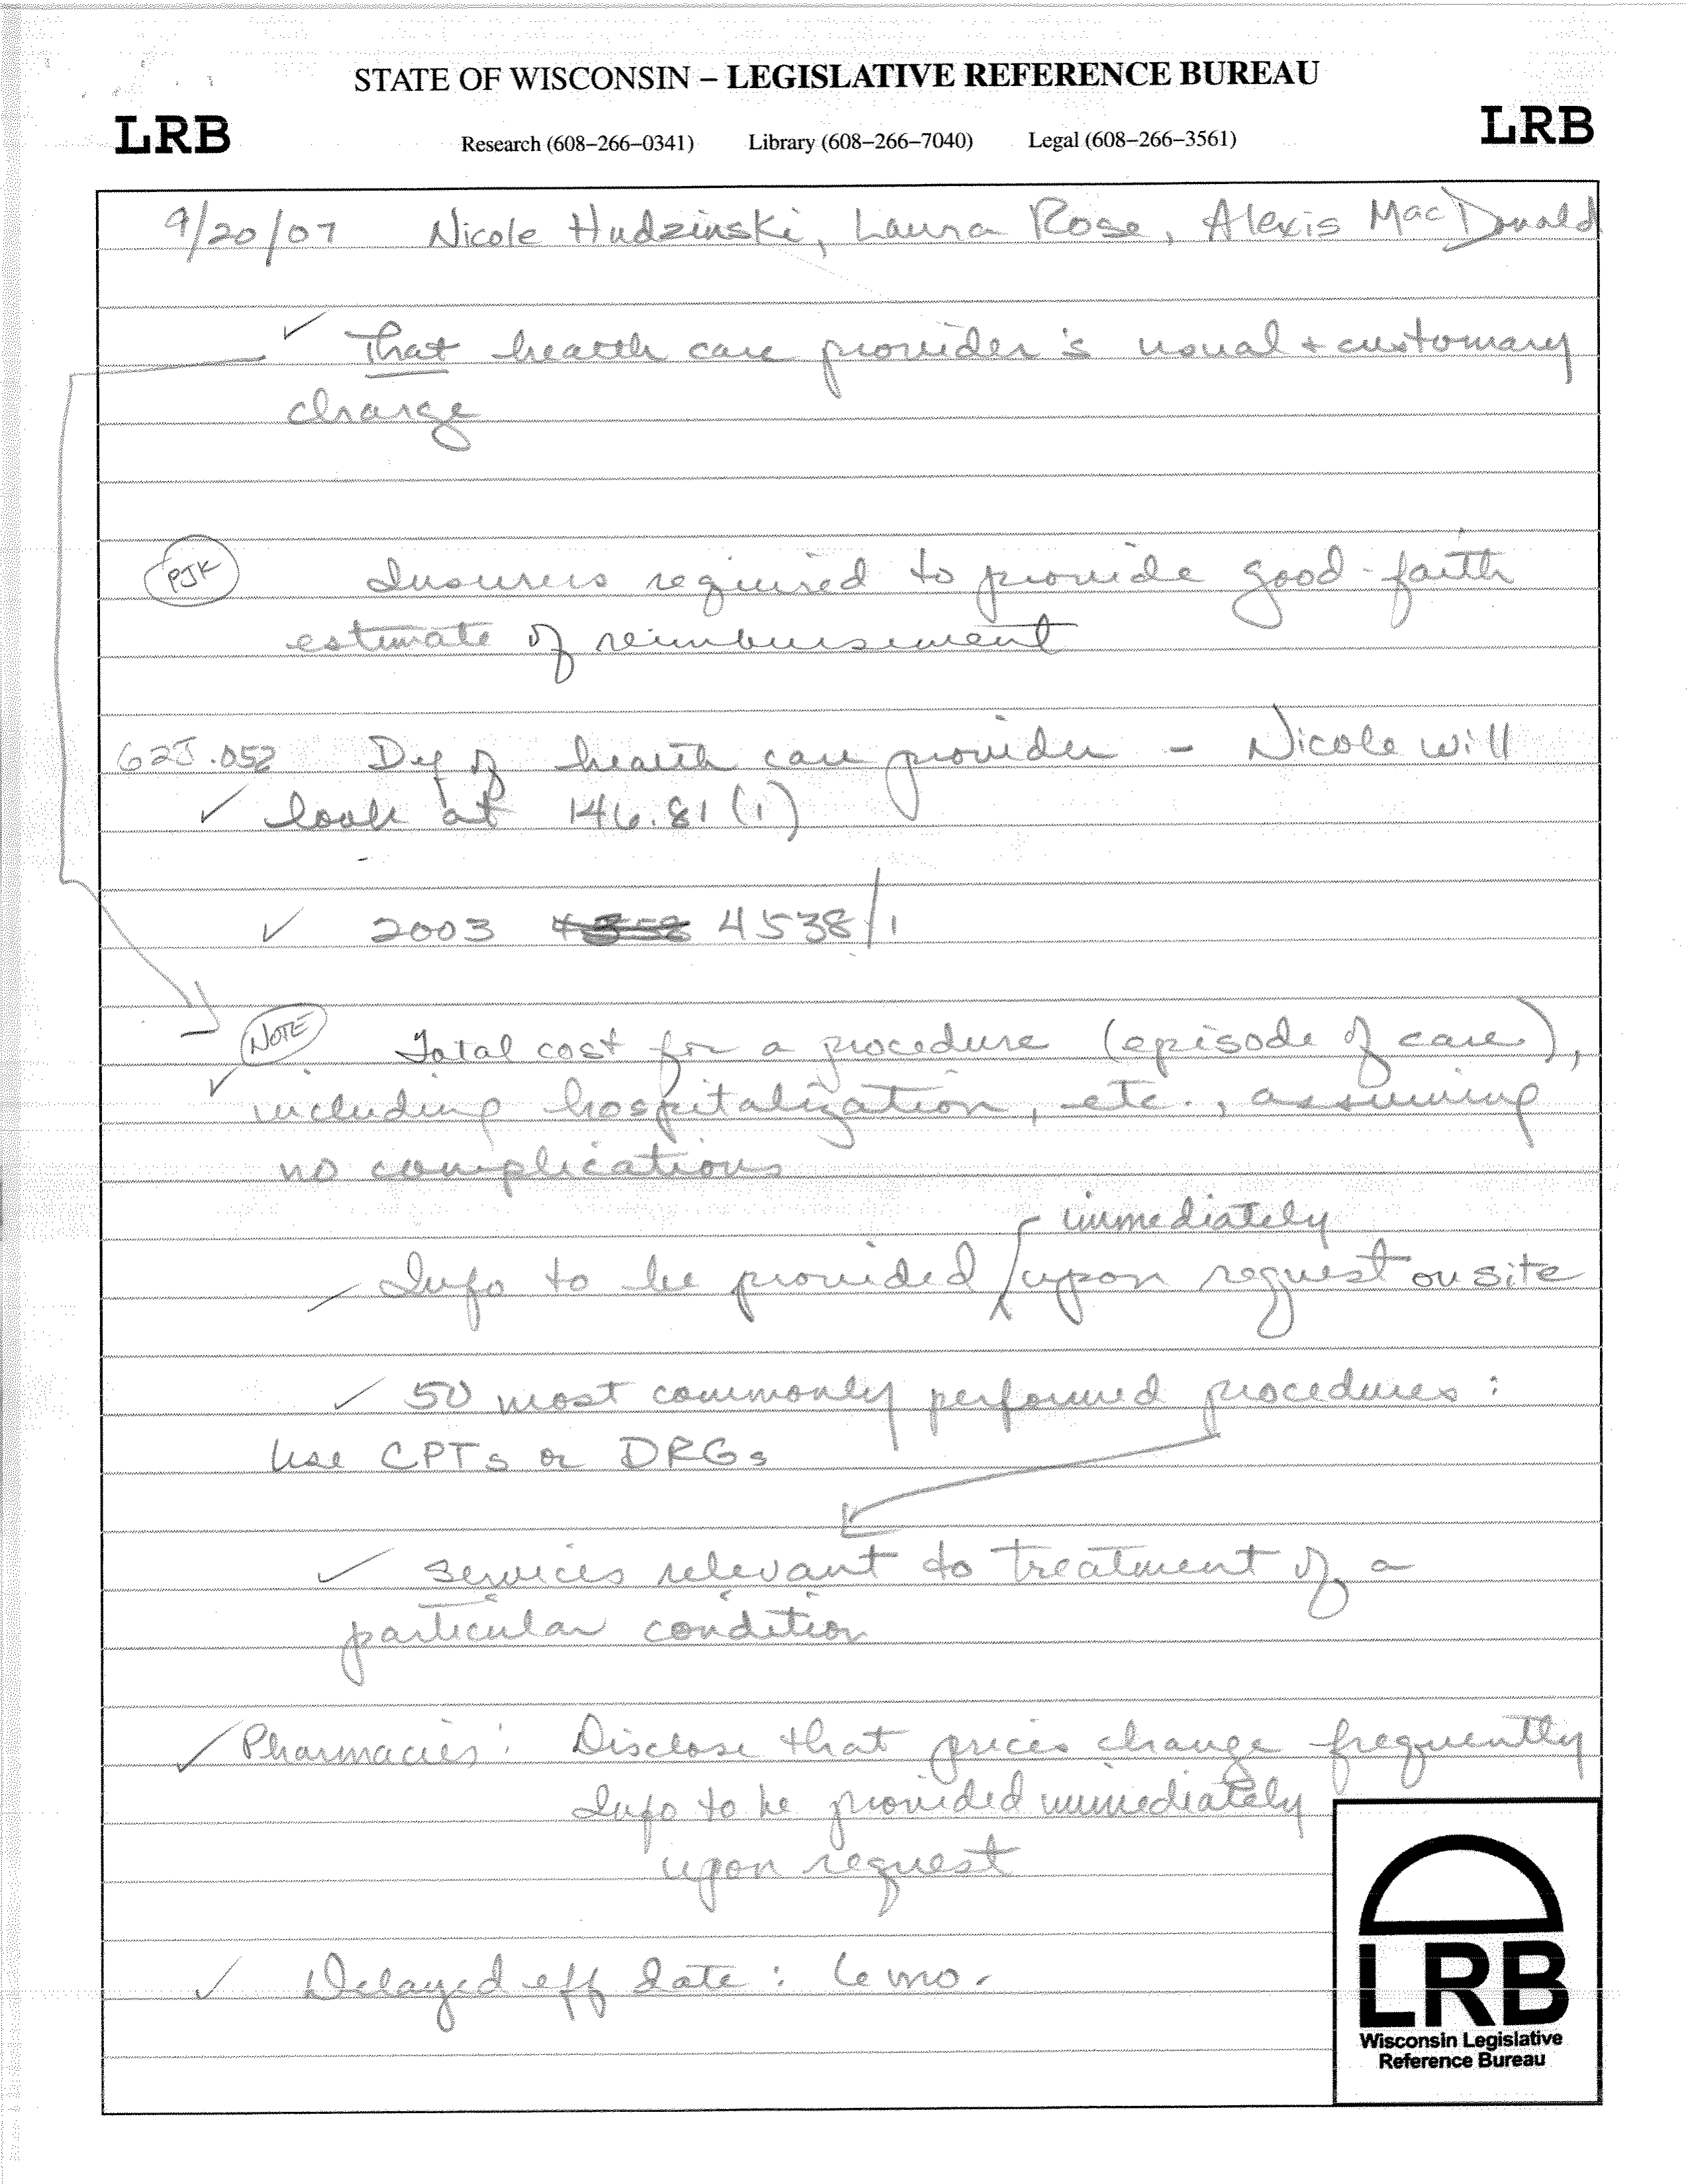 STATE OF WISCONSIN – LEGISLATIVE REFERENCE BUREAU
LRB
Research (608–266–0341) Library (608–266–7040) Legal (608–266–3561)
LRB
9/20/07 Nicole Hudzinski, Laura Rose, Alexis MacDonald
✓ That health care provider's usual + customary
charge
PJK Insurers required to provide good-faith
estimate of reimbursement
62J.052 Def of health care provider – Nicole will
✓ look at 146.81(1)
✓ 2003 4538/1
NOTE Total cost for a procedure (episode of care),
✓ including hospitalization, etc., assuming
no complications
immediately
Info to be provided upon request on site
✓ 50 most commonly performed procedures:
Use CPTs or DRGs
✓ services relevant to treatment of a
particular condition
✓ Pharmacies: Disclose that prices change frequently
Info to be provided immediately
upon request
✓ Delayed eff date: 6 mo.
LRB
Wisconsin Legislative
Reference Bureau